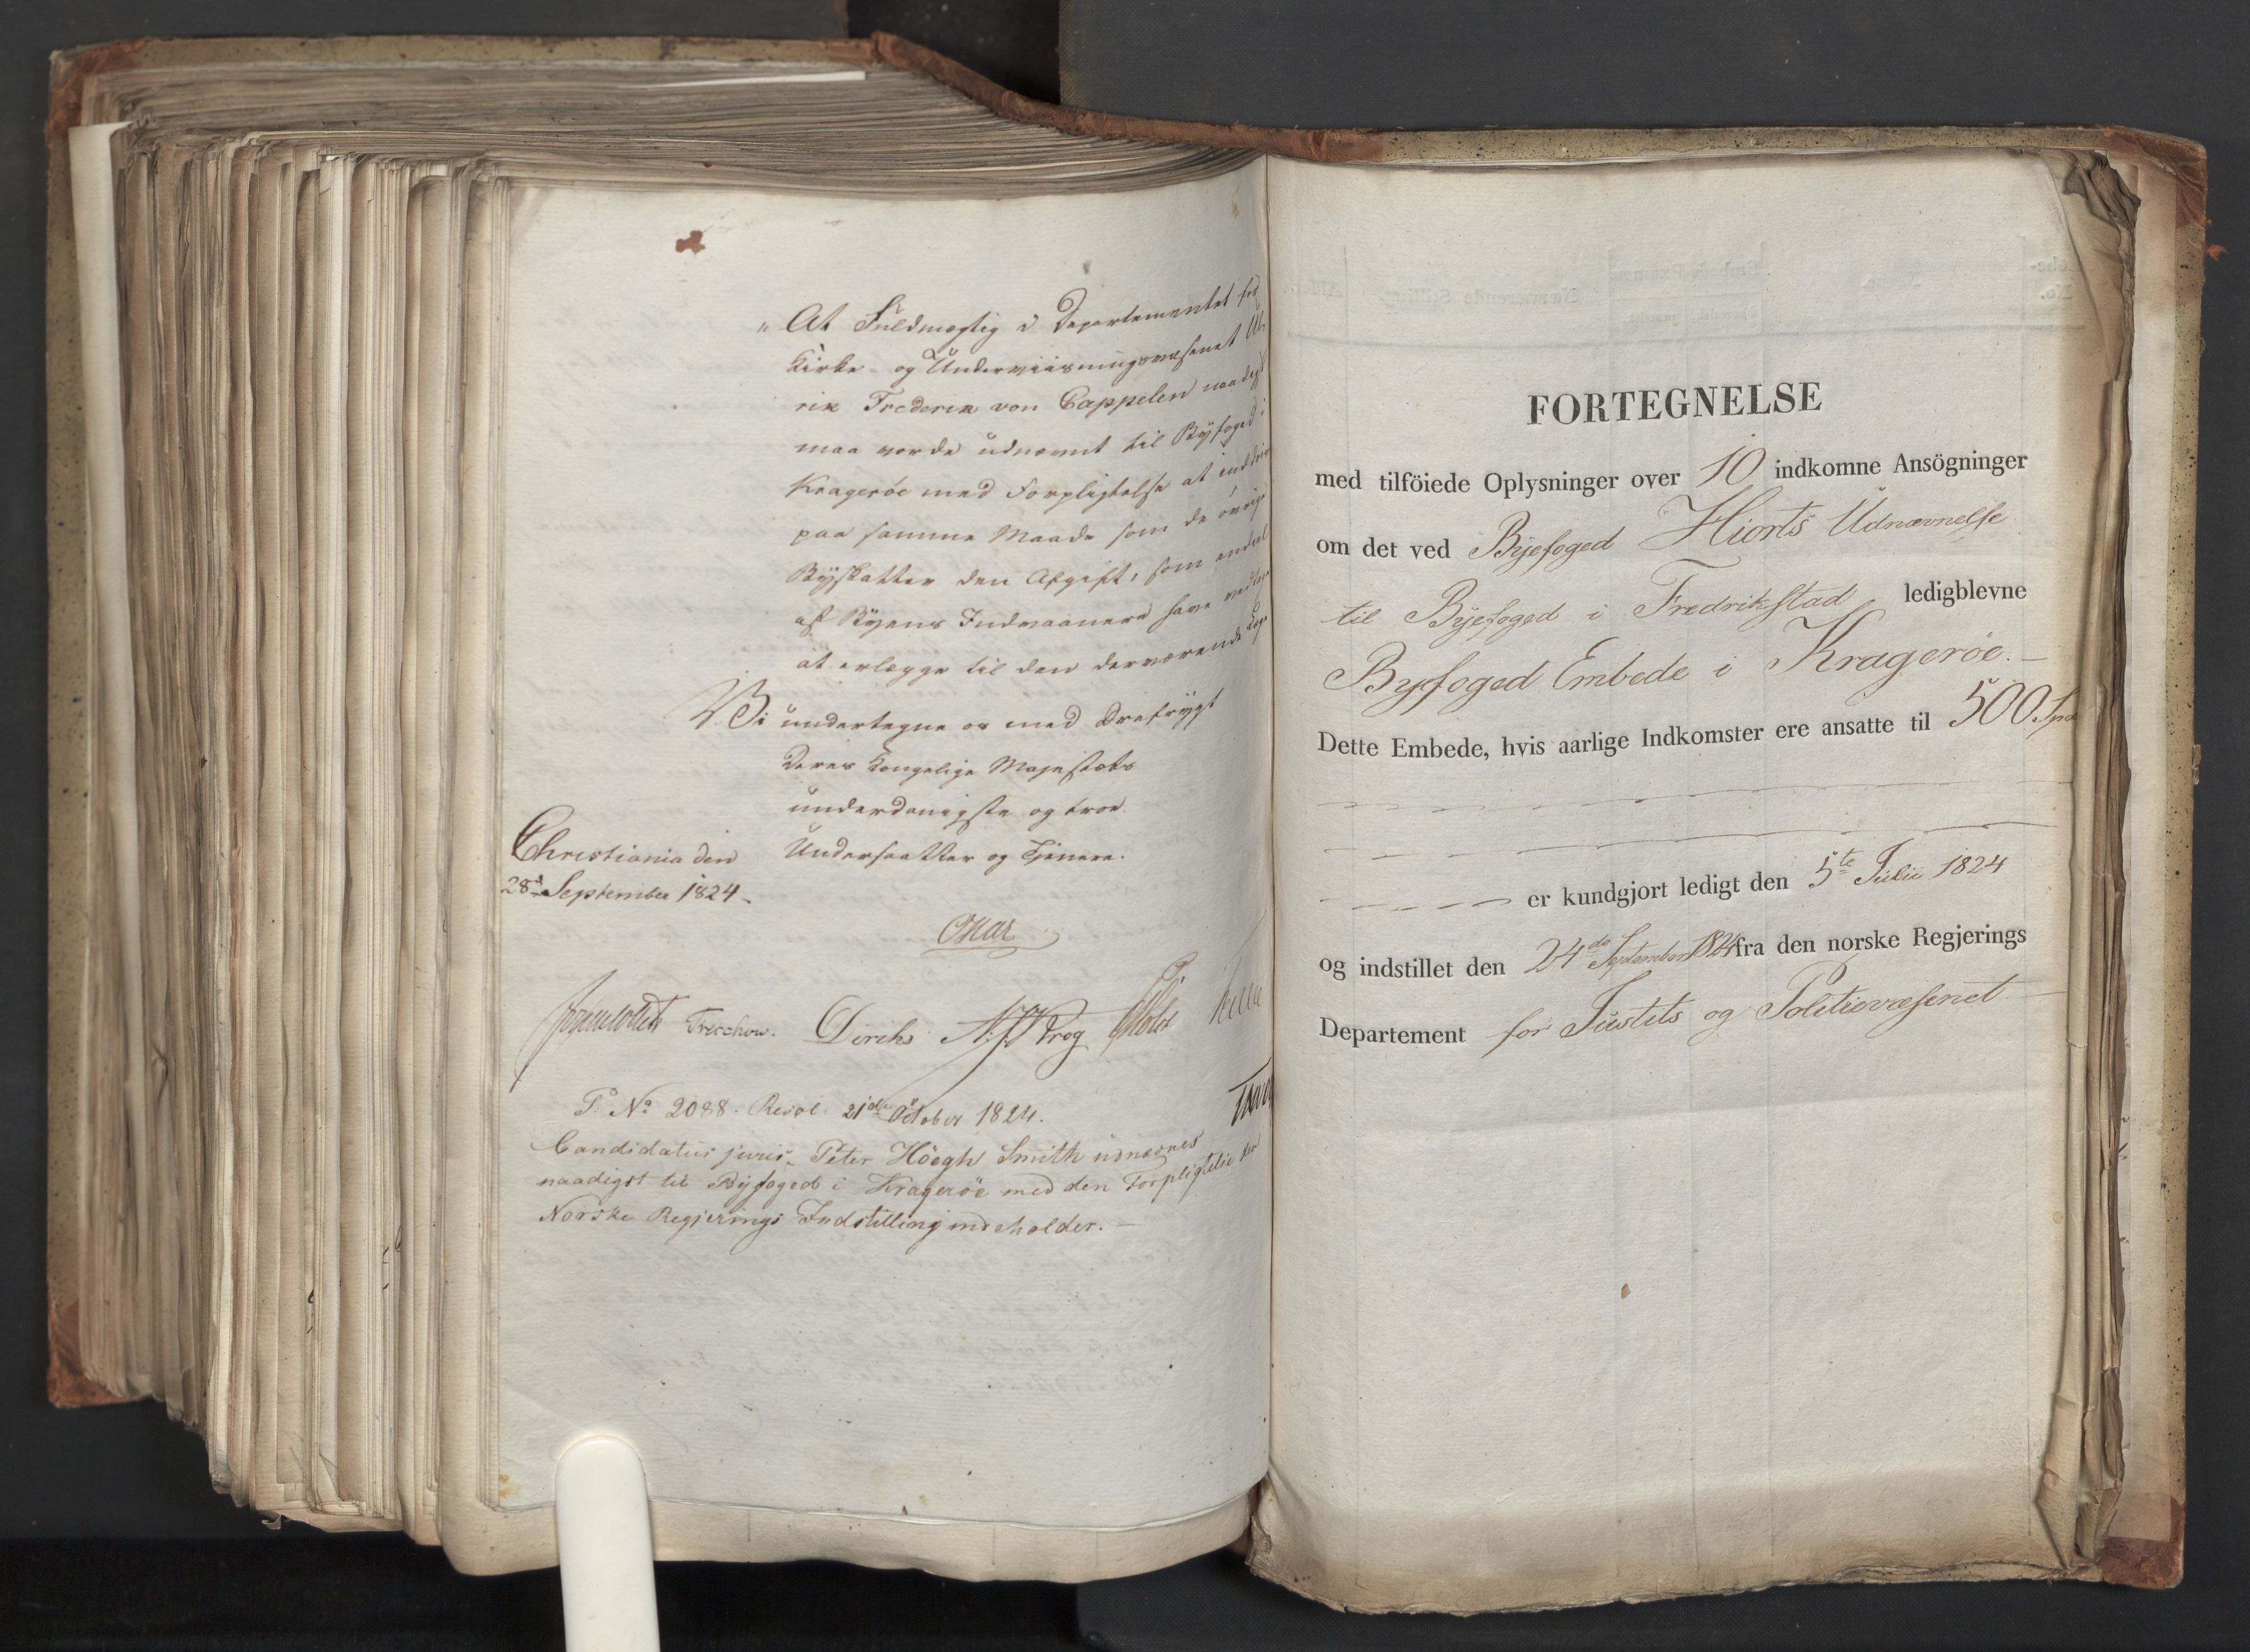 „ At Fuldmægtig i Departementet for
Kirke- og Underviisningsvæsenet Ul-
rik Frederik von Cappelen naadigst
maa vorde udnævnt til Byfoged i
Kragerøe med Forpligtelse at inddrive
paa samme Maade som de øvrige
Byskatter den Afgift, som endeel
af Byens Indvaanere have vedtaget
at erlægge til den derværende Læge
Vi undertegne os med Drefrygt
Deres Kongelige Majestæts
underdanigste og troe
Undersaatter og Tjenere.
Christiania den
28d September 1824.
Trecchow. Diriks
P. No 2088. Resol. 21de October 1824.
Candidatus juris, Peter Höegh Smith udnævnes
naadigst til Byfoged i Kragerøe med den Forpligtelse den
Norske Regjerings Indstilling indeholder. —
FORTEGNELSE
med tilföiede Oplysninger over 10 indkomne Ansögninger
om det ved Byefoged Hiorts Udnævnelse
til Byefoged i Fredrikstad ledigblevne
Byfoged Embede i Kragerøe. —
Dette Embede, hvis aarlige Indkomster ere ansatte til 500 Spd
er kundgjort ledigt den 5te Julii 1824
og indstillet den 24de September 1824 fra den norske Regjerings
Departement for Justits og Politievæsenet